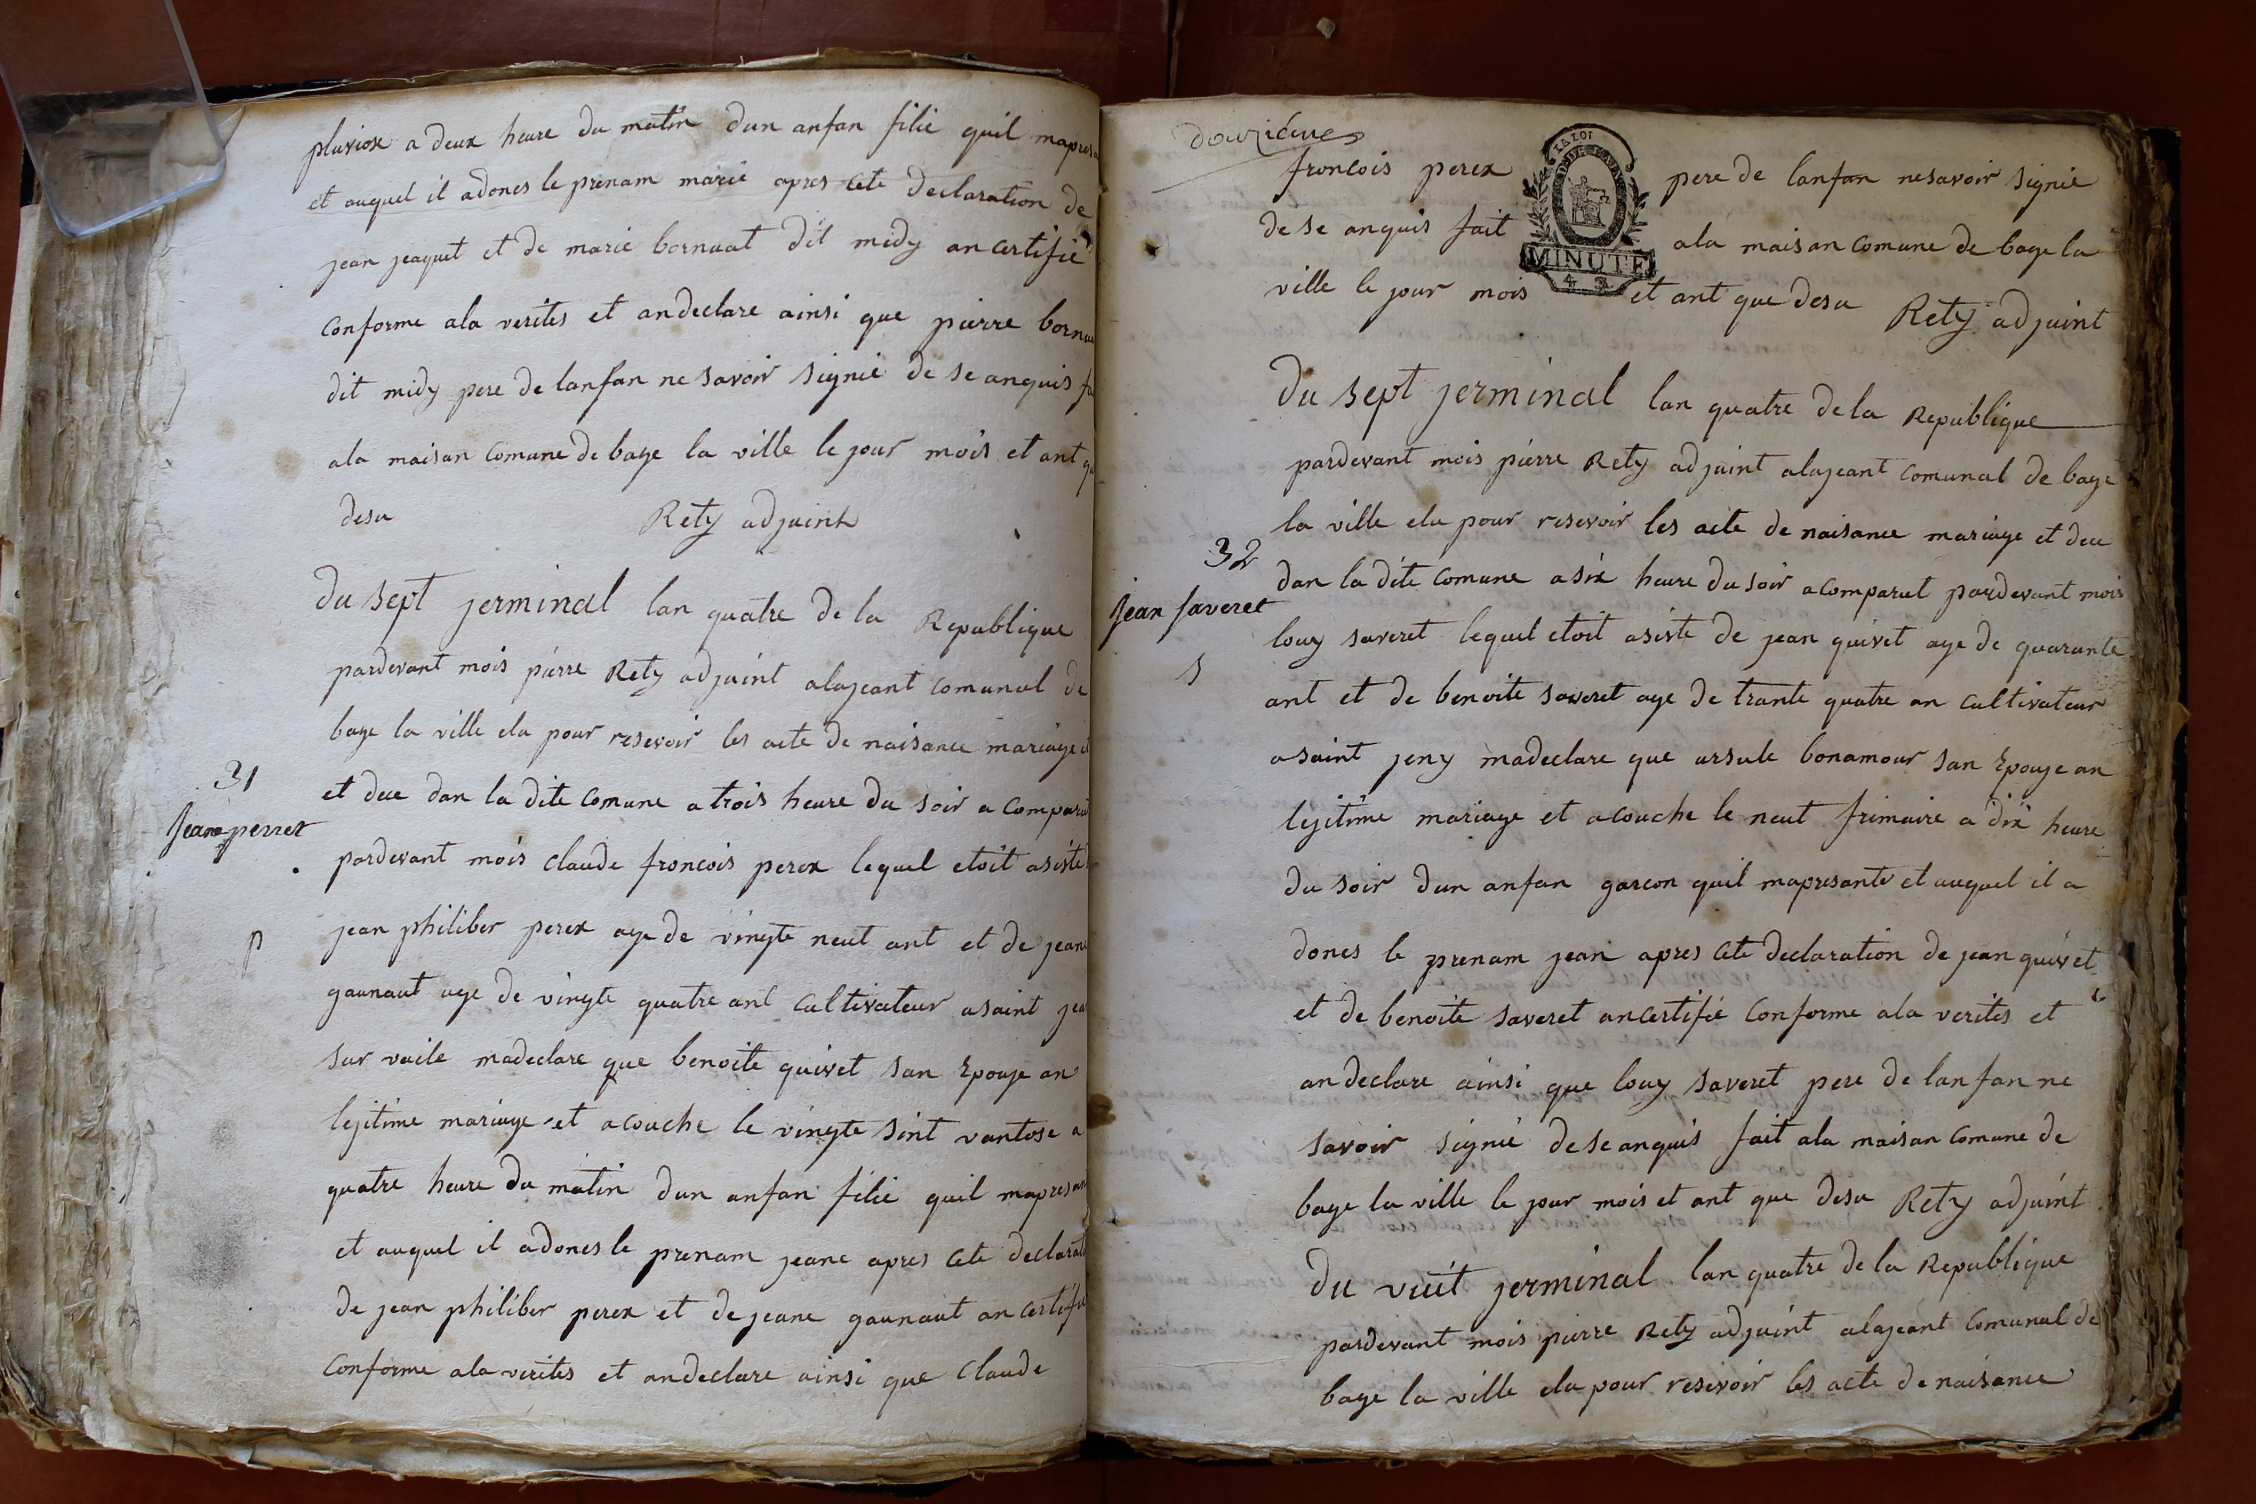 pluviose a deux heure du matin dun anfan filie quil mapres
et auquel il adones le prenam marie apres cete declaration de
jean jeaquet et de marie bornuat dit midy ancertifié
conforme ala verites et andeclare ainsi que pierre bornua
dit midy pere de lanfan ne savoir signié de se anquis fa
ala maisan comune de bage la ville le jour mois et ant qu
desu Rety adjuint
du sept jerminal lan quatre de la Republique
pardevant mois pierre Rety adjuint alajeant comunal de
bage la ville elu pour resevoir les acte de naisance mariage
31
et dece dan la dite comune a trois heure du soir a comparut
Jeane perret
pardevant mois claude francois perex lequel etoit asiste
jean philiber perex age de vingte neut ant et de jeane
p
gaunaut age de vingte quatre ant cultivateur asaint jea
sur vaile madeclare que benoite quivet san Epouse an
lejitime mariage et acouche le vingte sint vantose a
quatre heure du matin dun anfan filie quil mapresan
et auquel il adones le prenam jeane apres cete declarat
de jean philiber perex et de jeane gaunaut ancertifié
conforme ala verites et andeclare ainsi que claude
douziéme
francois perex pere de lanfan nesavoir signié
LA LOI
de se anquis fait ala maisan comune de bage la
MINUTE
ville le jour mois et ant que desu Rety adjuint
du sept jerminal lan quatre dela Republique
pardevant mois pierre Rety adjuint alajeant comunal de bage
la ville elu pour resevoir les acte de naisance mariage et dece
32
dan la dite comune a six heure du soir acomparut pardevant mois
Jean saveret
louy saveret lequel etoit asiste de jean quivet age de quarante
s
ant et de benoite saveret age de trante quatre an cultivateur
asaint jeny madeclare que ursule bonamour san Epouse an
lejitime mariage et acouche le neut frimaire a dix heure
du soir dun anfan garcon quil mapresante et auquel il a
dones le prenam jean apres cete declaration de jean quivet
et de benoite saveret ancertifié conforme ala verites et
andeclare ainsi que louy saveret pere de lanfan ne
savoir signié de se anquis fait ala maisan comune de
bage la ville le jour mois et ant que desu Rety adjuint
du vuit jerminal lan quatre de la Republique
pardevant mois pierre Rety adjuint alajeant comunal de
bage la ville elu pour resevoir les acte de naisance